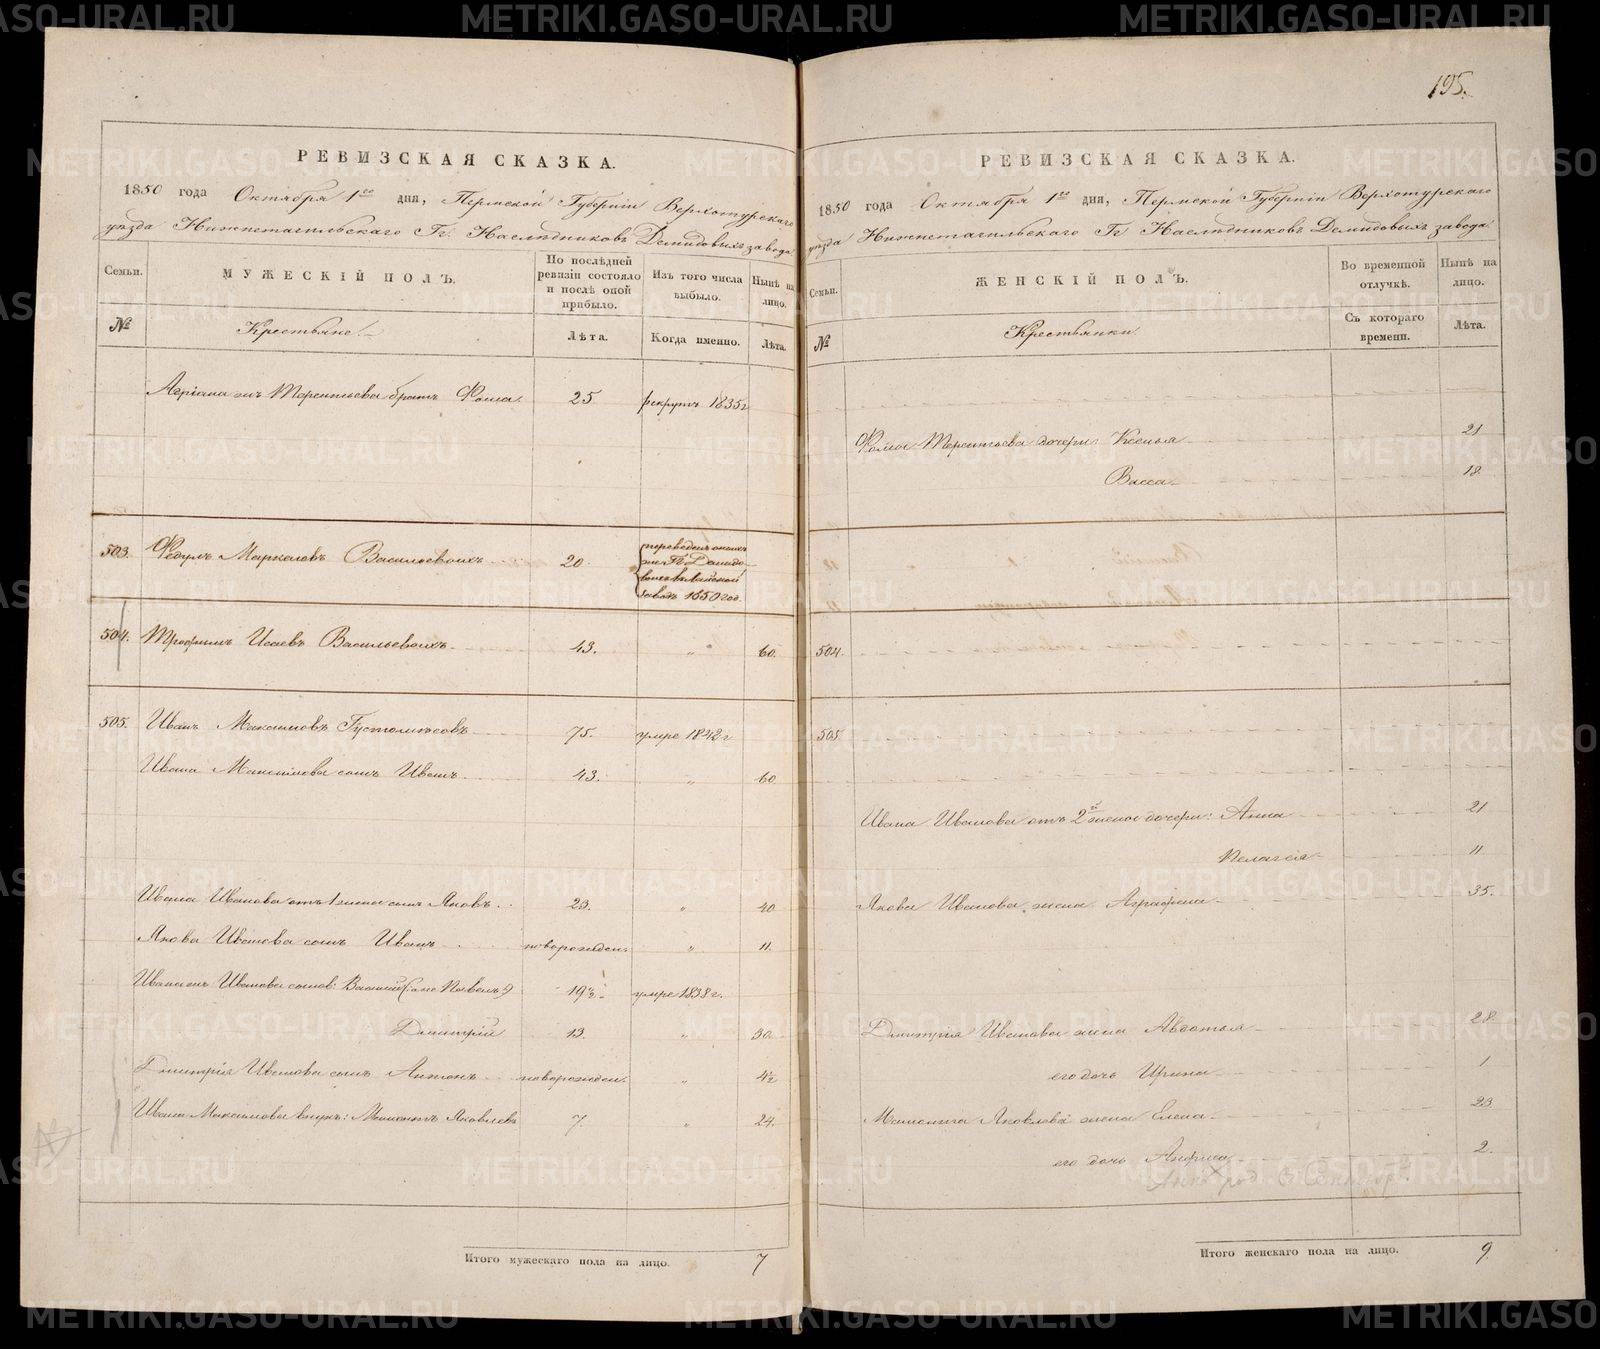 195.
РЕВИЗСКАЯ СКАЗКА.
1850 года Октября 1го дня, Пермской Губерніи Верхотурскаго
уѣзда Нижнетагильскаго Гг. Наслѣдниковъ Демидовыхъ завода.
Семьи.
МУЖЕСКІЙ ПОЛЪ.
По послѣдней ревизіи состояло и послѣ оной прибыло.
Изъ того числа выбыло.
Нынѣ на лицо.
№
Крестьяне.
Лѣта.
Когда именно.
Лѣта.
Терентьева братъ Фома. 25 рекрутъ 1835 г
503. Федулъ Маркеловъ Васильевыхъ 20 переведенъ
Демидо-
выхъ въ Лайской
заводъ 1850 год.
504. Трофимъ Исаевъ Васильевыхъ 43. " 60.
505. Иванъ Максимовъ Густомѣсовъ 75. умре 1842 г
Ивана Максимова сынъ Иванъ 43. " 60
Ивана Иванова отъ 1 жены сынъ Яковъ 23. " 40
Якова Иванова сынъ Иванъ новорожден. " 11.
Иванова сынов: Василий (а не Павелъ) 19½ умре 1838 г.
Дмитрій 13. " 30
Дмитрія Иванова сынъ Антонъ новорожден. " 4½
Ивана Максимова внукъ: Мамонтъ Яковлевъ 7. " 24.
Итого мужескаго пола на лицо. 7
РЕВИЗСКАЯ СКАЗКА.
1850 года Октября 1го дня, Пермской Губерніи Верхотурскаго
уѣзда Нижнетагильскаго Гг Наслѣдниковъ Демидовыхъ завода.
Семьи.
ЖЕНСКІЙ ПОЛЪ.
Во временной отлучкѣ.
Нынѣ на лицо.
№
Крестьянки.
Съ котораго времени.
Лѣта.
Фомы Терентьева дочери: Ксенья 21
Васса 18.
504.
505.
Ивана Иванова отъ 2й жены дочери: Анна 21
Пелагея 11
Якова Иванова жена Аграфена 35.
Дмитрія Иванова жена Авдотья 28.
его дочь Ирина 1
Мамонта Яковлева жена Елена 23
его дочь Анфиса 2.
Итого женскаго пола на лицо. 9.
METRIKI.GASO-URAL.RU